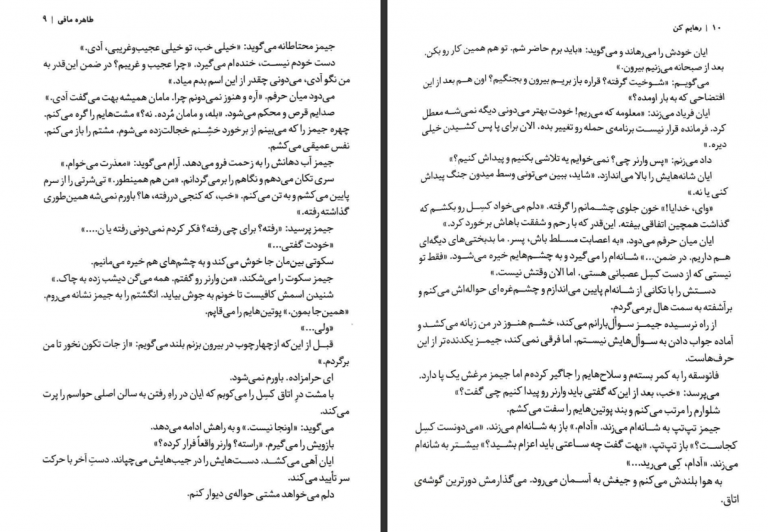 طاهره مافی | ۹
جیمز محتاطانه می‌گوید: «خیلی خب، تو خیلی عجیب‌وغریبی، آدی.»
دست خودم نیست، خنده‌ام می‌گیرد. «چرا عجیب و غریبم؟ در ضمن این‌قدر به
من نگو آدی، می‌دونی چقدر از این اسم بدم میاد.»
می‌دود میان حرفم. «آره و هنوز نمی‌دونم چرا. مامان همیشه بهت می‌گفت آدی.»
صدایم قرص و محکم می‌شود. «بله، و مامان مُرده. نه؟» مشت‌هایم را گره می‌کنم.
چهره جیمز را که می‌بینم از برخورد خشِنم خجالت‌زده می‌شوم. مشتم را باز می‌کنم.
نفس عمیقی می‌کشم.
جیمز آب دهانش را به زحمت فرو می‌دهد. آرام می‌گوید: «معذرت می‌خوام.»
سری تکان می‌دهم و نگاهم را برمی‌گردانم. «من هم همینطور.» تی‌شرتی را از سرم
پایین می‌کشم و به تن می‌کنم. «خب، که کنجی دررفته، ها؟ باورم نمی‌شه همین‌طوری
گذاشته رفته.»
جیمز پرسید: «رفته؟ برای چی رفته؟ فکر کردم نمی‌دونی رفته یا ن....»
«خودت گفتی...»
سکوتی بین‌مان جا خوش می‌کند و به چشم‌های هم خیره می‌مانیم.
جیمز سکوت را می‌شکند. «من وارنر رو گفتم. همه می‌گن دیشب زده به چاک.»
شنیدن اسمش کافیست تا خونم به جوش بیاید. انگشتم را به جیمز نشانه می‌روم.
«همین‌جا بمون.» پوتین‌هایم را می‌قاپم.
«ولی...»
قبل از این‌که ازچهارچوب در بیرون بزنم بلند می‌گویم: «از جات تکون نخور تا من
برگردم.»
ای حرامزاده. باورم نمی‌شود.
با مشت در اتاق کنبل را می‌کوبم که ایان در راهِ رفتن به سالن اصلی حواسم را پرت
می‌کند.
می‌گوید: «اونجا نیست.» و به راهش ادامه می‌دهد.
بازویش را می‌گیرم. «راسته؟ وارنر واقعاً فرار کرده؟»
ایان آهی می‌کشد. دست‌هایش را در جیب‌هایش می‌چپاند. دستِ آخر با حرکت
سر تأیید می‌کند.
دلم می‌خواهد مشتی حواله‌ی دیوار کنم.
۱۰ | رهایم کن
ایان خودش را می‌رهاند و می‌گوید: «باید برم حاضر شم. تو هم همین کار رو بکن.
بعد از صبحانه می‌زنیم بیرون.»
می‌گویم: «شوخیت گرفته؟ قراره باز بریم بیرون و بجنگیم؟ اون هم بعد از این
افتضاحی که به بار اومده؟»
ایان فریاد می‌زند: «معلومه که می‌ریم! خودت بهتر می‌دونی دیگه نمی‌شه معطل
کرد. فرمانده قرار نیست برنامه‌ی حمله رو تغییر بده. الان برای پا پس کشیدن خیلی
دیره.»
داد می‌زنم: «پس وارنر چی؟ نمی‌خوایم یه تلاشی بکنیم و پیداش کنیم؟»
ایان شانه‌هایش را بالا می‌اندازد. «شاید، ببین می‌تونی وسط میدون جنگ پیداش
کنی یا نه.»
«وای، خدایا!» خون جلوی چشمانم را گرفته. «دلم می‌خواد کنبل رو بکشم که
گذاشت همچین اتفاقی بیفته. این‌قدر که با رحم و شفقت باهاش برخورد کرد.»
ایان میان حرفم می‌دود. «به اعصابت مسلط باش، پسر. ما بدبختی‌های دیگه‌ای
هم داریم. در ضمن...» شانه‌ام را می‌گیرد و به چشم‌هایم خیره می‌شود. «فقط تو
نیستی که از دست کنبل عصبانی هستی. اما الان وقتش نیست.»
دستش را با تکانی از شانه‌ام پایین می‌اندازم و چشم‌غره‌ای حواله‌اش می‌کنم و
برآشفته به سمت هال برمی‌گردم.
از راه نرسیده جیمز سوأل‌بارانم می‌کند، خشم هنوز در من زبانه می‌کشد و
آماده جواب دادن به سوأل‌هایش نیستم. اما فرقی نمی‌کند، جیمز یک‌دنده‌تر از این
حرف‌هاست.
فانوسقه را به کمر بستم و سلاح‌هایم را جاگیر کرده‌م اما جیمز مرغش یک پا دارد.
می‌پرسد: «خب، بعد از این‌که گفتی باید وارنر رو پیدا کنیم چی گفت؟»
شلوارم را مرتب می‌کنم و بند پوتین‌هایم را سفت می‌کشم.
جیمز تپ‌تپ به شانه‌ام می‌زند. «آدام.» باز به شانه‌ام می‌زند. «می‌دونست کنبل
کجاست؟» باز تپ‌تپ. «بهت گفت چه ساعتی باید اعزام بشید؟» بیشتر به شانه‌ام
می‌زند. «آدام، کِی می‌رید...»
به هوا بلندش می‌کنم و جیغش به آسمان می‌رود. می‌گذارمش دورترین گوشه‌ی
اتاق.